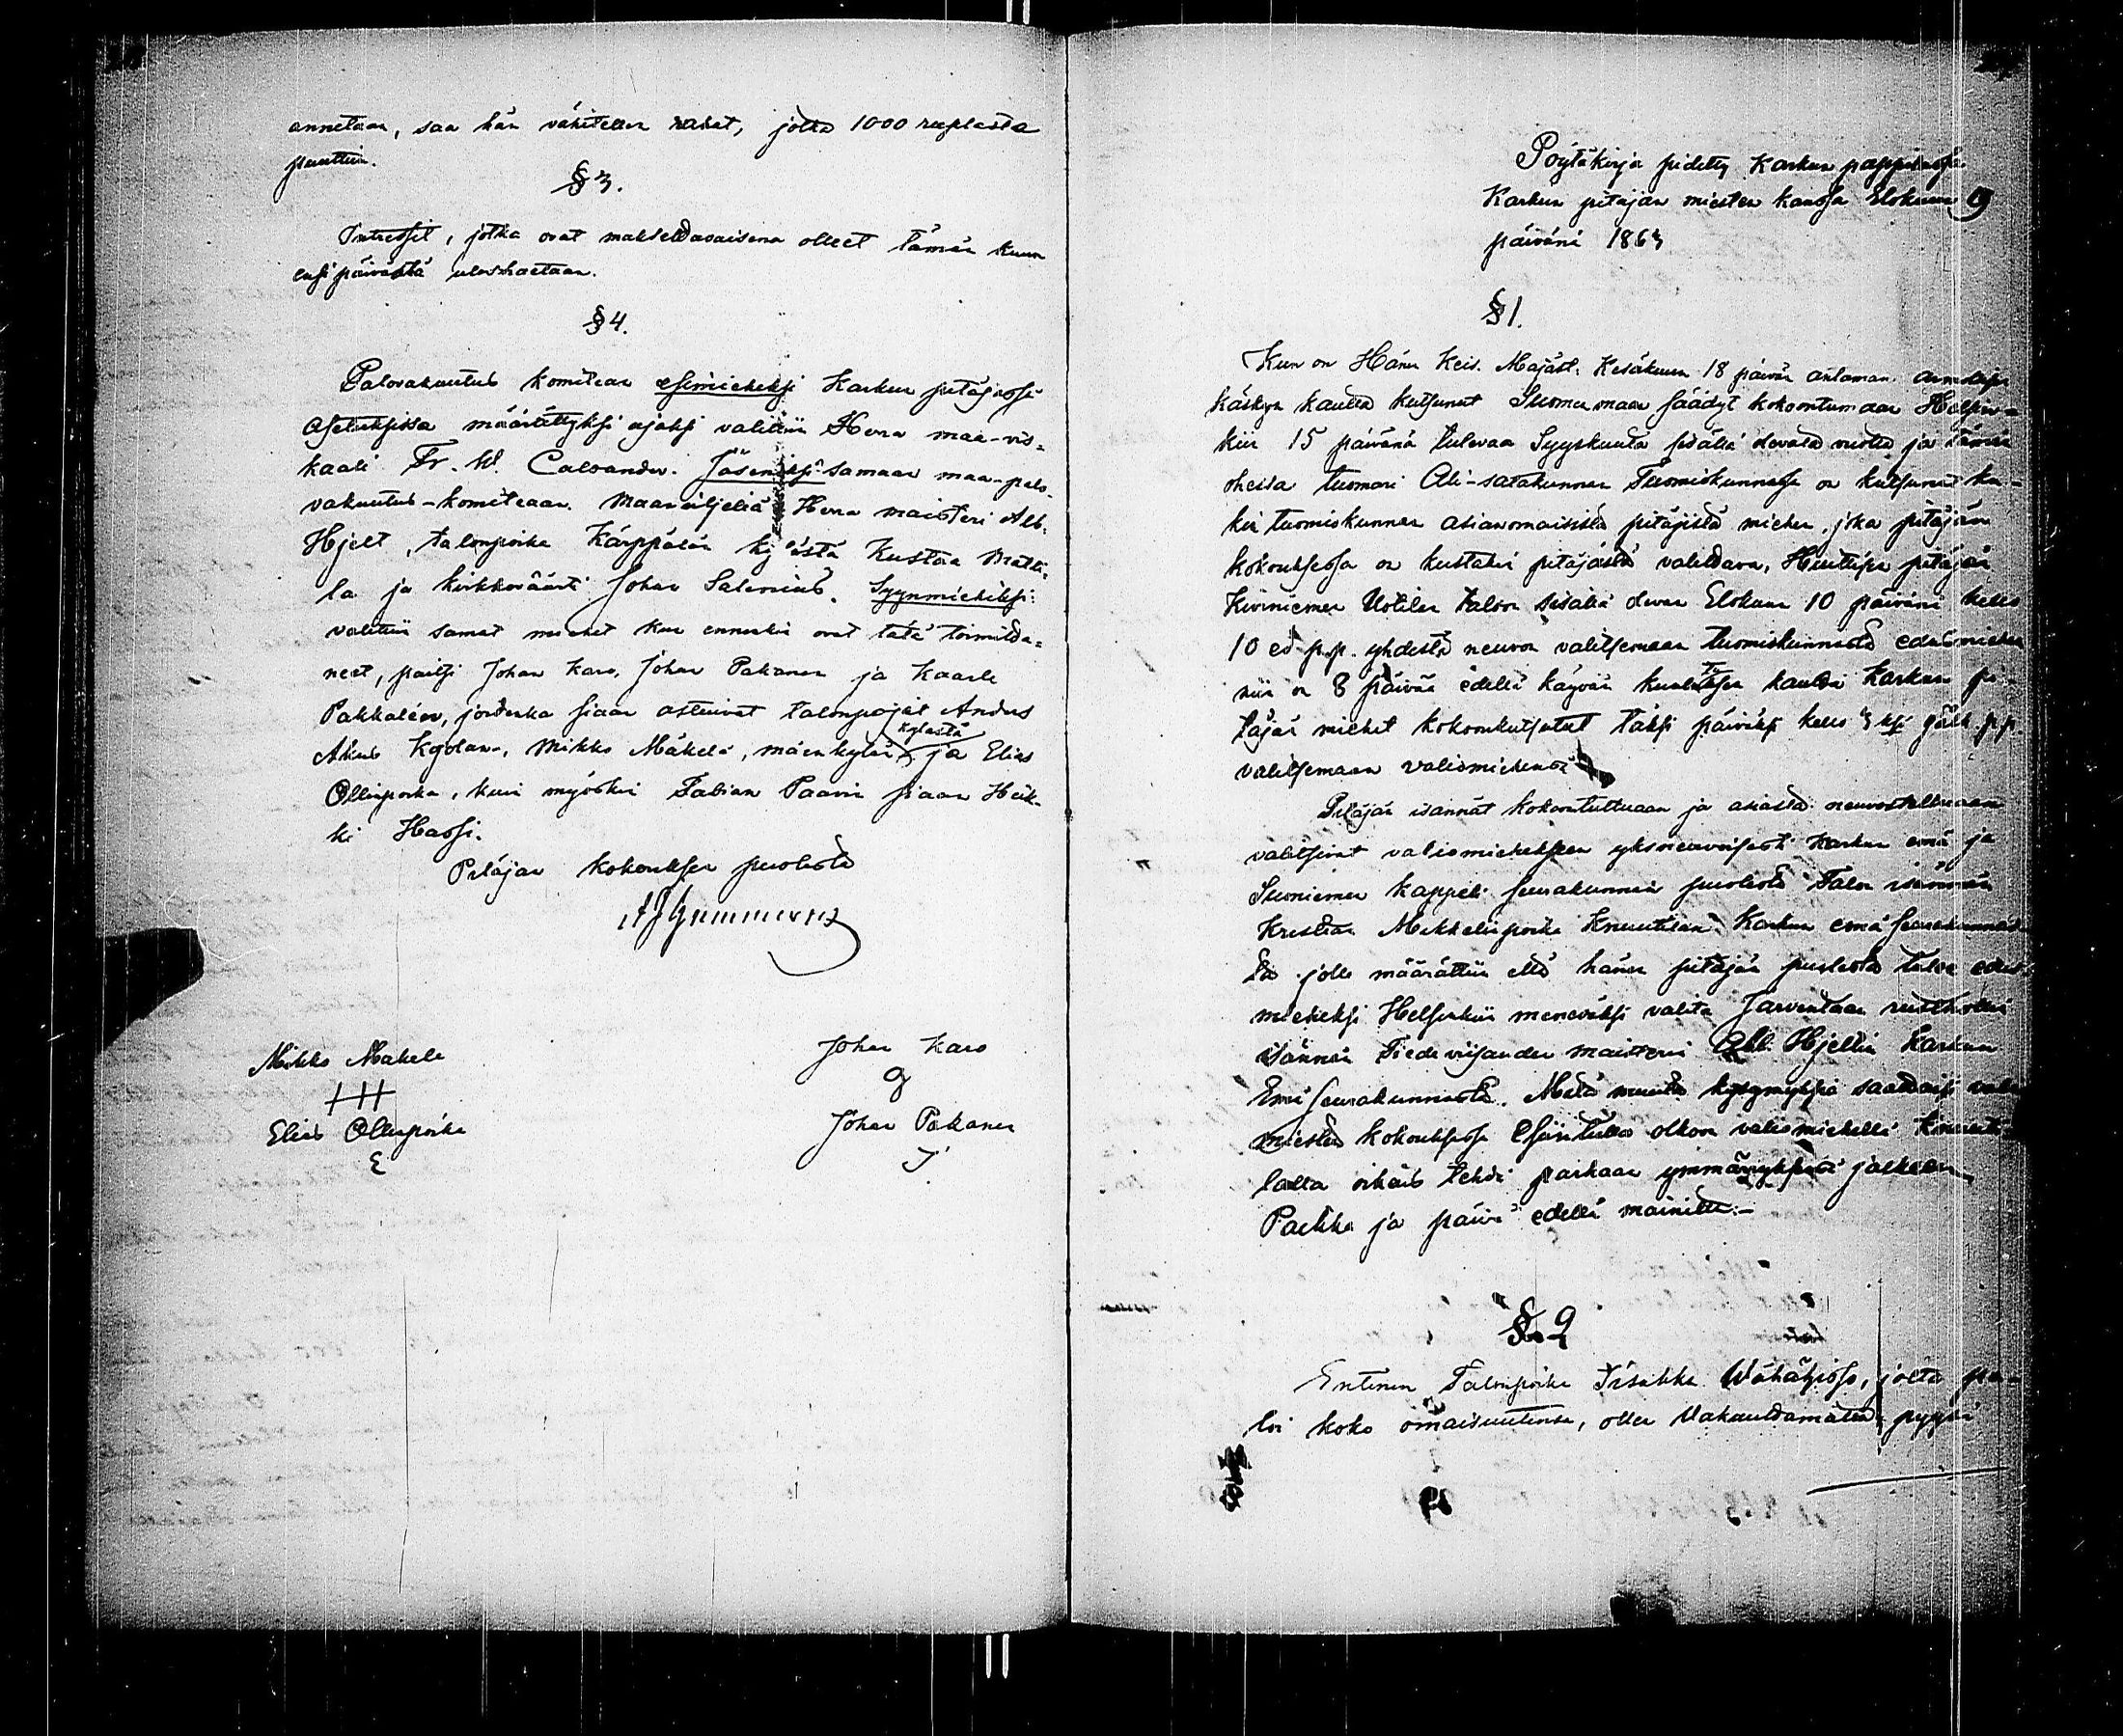 annetaan, saa hän vähitellen rahat, jotka 1000 ruplasta
puuttuu.
§ 3.
Intressit, jotka ovat maksettavaisena olleet tämän kuun
ensi päivästä uloshaetaan.
§ 4.
Palovakuutus komitean esimieheksi Karkun pitäjässä
asetuksissa määrätyksi ajaksi valittiin Herra maa-vis-
kaali Fr. W. Calvander. Jäseniksi samaan maa-palo-
vakuutus-komiteaan. Maanviljeliä Herra maisteri Alb.
Hjelt, talonpoika Kärppälän kylästä Kustaa Matti-
la ja kirkkoväärti Johan Salenius. Syynmiehiksi:
valittiin samat miehet kun ennenkin ovat tätä toimitta-
neet, paitsi Johan Karo, Johan Pakanen ja Kaarle
Pakkalén, joidenka siaan astuivat talonpojat Anders
Akus Kojolan, Mikko Mäkelä, mäenkylän kylästä ja Elias
Ollinpoika, kuin myöskin Fabian Paavin siaan Heik-
ki Hassi.
Pitäjän kokouksen puolesta
A J Gummerus
Mikko Makela
Elias Ollinpoika
E
Johan Karo
Johan Pakanen
J
Pöytäkirja pidetty Karkun pappilassa
Karkun pitäjän miesten kanssa Elokuun 9
päivänä 1863
§ 1.
Kun on Hänen Keis. Majäst. Kesäkuun 18 päivän antaman armollisen
käskyn kautta kutsunut Suomenmaan säädyt kokoontumaan Helsin-
kiin 15 päivänä tulevaa Syyskuuta sisällä olevata vuotta ja tämän
ohessa tuomari Ali-satakunnan Tuomiokunnassa on kutsunut ku-
kin tuomiokunnan asianomaisista pitäjistä miehen, joka pitäjän
kokouksessa on kustakin pitäjästä valittava, Huittisen pitäjän
Kiviniemen Uotilan taloon sisällä olevan Elokuun 10 päivänä kello
10 ed. p.p. yhdestä neuvon valitsemaan tuomiokunnasta edusmiehen
niin on 8 päivää edellä käyvän kuulutuksen kautta Karkun pi-
täjän miehet kokoonkutsutut täksi päiväksi kello 3 ksi jälk. p.p.
valitsemaan valiomiehensä
Pitäjän isännät kokoontuttuaan ja asiasta neuvoteltuaan
valitsivat valiomieheksen yksineuvoisesti Karkun emä ja
Suoniemen kappeli seurakunnan puolesta Talon isännän
Kristian Mikkelinpoika Knuutilan Karkun emä seurakunnas-
ta jolle määrättiin että hänen pitäjän puolesta tulee edus-
mieheksi Helsinkiin meneväksi valita Järventaan rusthollin
isännän Tiedeviisauden maisterin Alb. Hjeltin Karkun
Emä seurakunnasta. Mitä muuta kysymyksiä saattaisi valio-
miesten kokouksessa esiintulla olkoon valiomiehellä Knuuti-
lalla oikeus tehdä parhaan ymmärryksensä jälkeen.
Paikka ja päivä edellä mainittu.—
§ 2
Entinen Talonpoika Iisakka Wähähiossa, jolta pa-
loi koko omaisuutensa, ollen Vakuuttamatta, pyysi